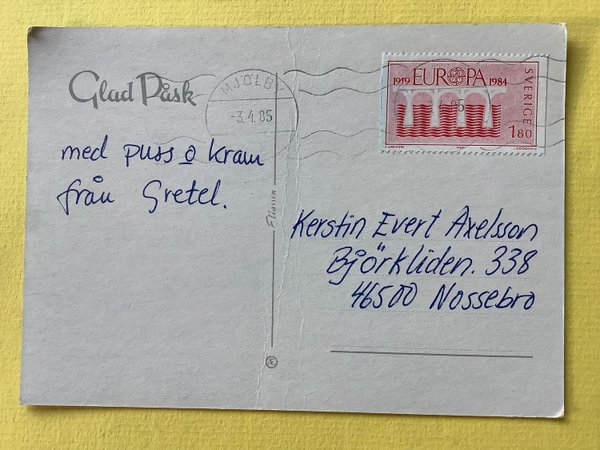 Glad Påsk
MJÖLBY
-3.4.85
1959 EUROPA CEPT 1984
SVERIGE
1.80
med puss o kram
från Gretel.
Kerstin Evert Axelsson
Björkliden. 338
46500 Nossebro